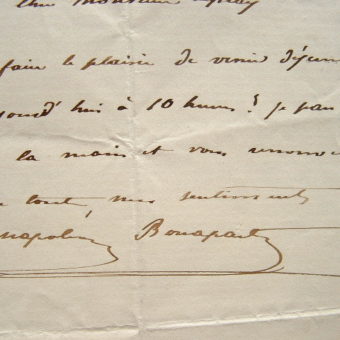 Cher Monsieur
faire le plaisir de venir déjeun
jourd'hui à 10 heures? je par
la main et vous renouv
tout, mes sentiments
Napoléon Bonaparte